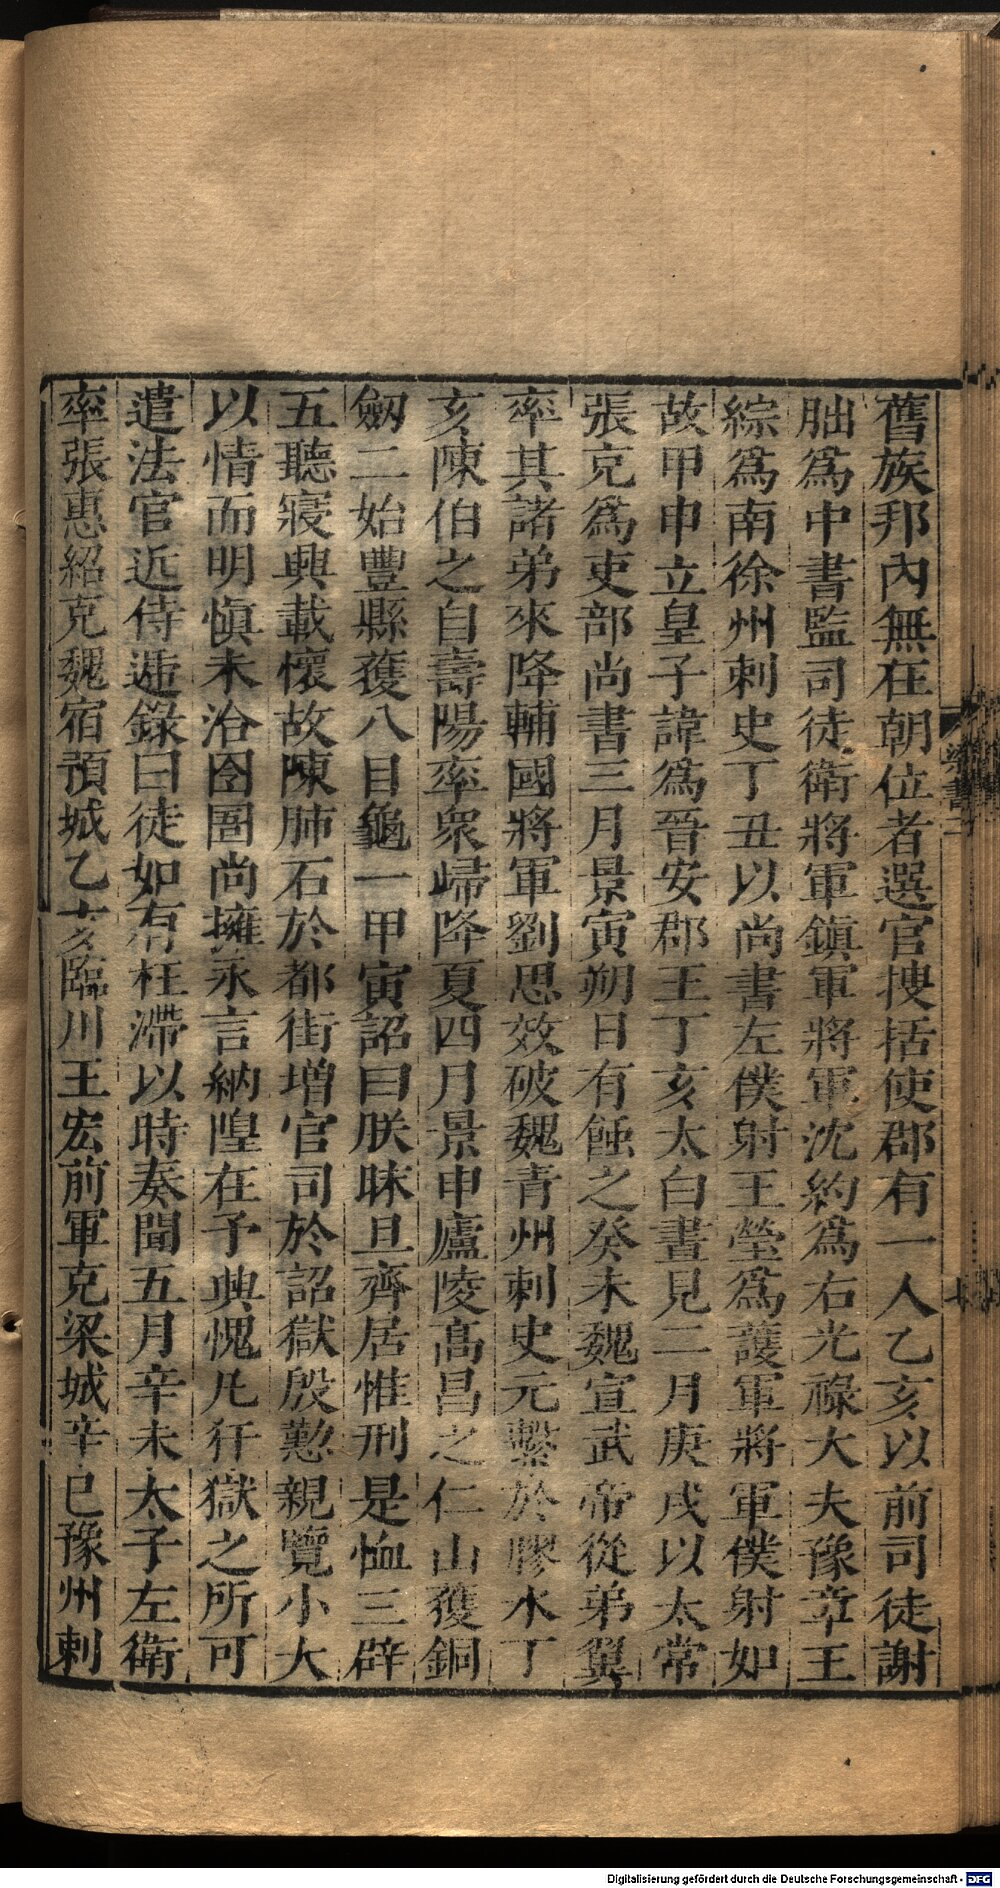 舊族邦內無在朝位者選官搜括使郡有一人乙亥以前司徒謝
朏爲中書監司徒衛將軍鎮軍將軍沈約爲右光祿大夫豫章王
綜爲南徐州刺史丁丑以尚書左僕射王瑩爲護軍將軍僕射如
故甲申立皇子諱爲晉安郡王丁亥太白晝見二月庚戌以太常
張克爲吏部尚書三月景寅朔日有蝕之癸未魏宣武帝從弟翼
率其諸弟來降輔國將軍劉思效破魏青州刺史元繫於膠水丁
亥陳伯之自壽陽率衆歸降夏四月景申廬陵高昌之仁山獲銅
劒二始豐縣獲八目龜一甲寅詔曰朕昧旦齊居惟刑是恤三辟
五聽寢興載懷故陳肺石於都街增官司於詔獄殷懃親覽小大
以情而明慎未洽囹圄尚擁永言納隍在予興愧凡犴獄之所可
遣法官近侍遞錄囚徒如有枉滯以時奏聞五月辛未太子左衛
率張惠紹克魏宿預城乙亥臨川王宏前軍克梁城辛巳豫州刺
梁書二
七
Digitalisierung gefördert durch die Deutsche Forschungsgemeinschaft - DFG